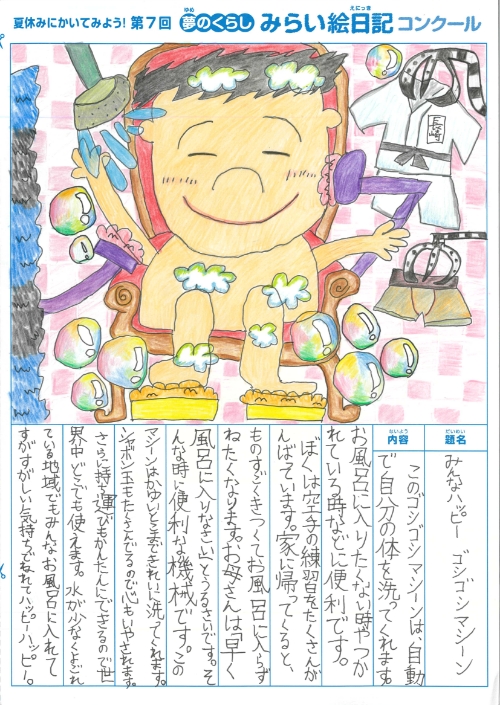 夏休みにかいてみよう! 第7回 夢のくらし みらい絵日記 コンクール
ゆめ
えにっき
長崎
だいめい
題名
みんなハッピー ゴシゴシマシーン
ないよう
内容
このゴシゴシマシーンは、自動
で自分の体を洗ってくれます。
お風呂に入りたくない時やつか
れている時などに便利です。
ぼくは空手の練習をたくさんが
んばっています。家に帰ってくると、
ものすごくきつくてお風呂に入らず
ねたくなります。お母さんは「早く
風呂に入りなさい」とうるさいです。そ
んな時に便利な機械です。この
マシーンはかゆいところまできれいに洗ってくれます。
シャボン玉もたくさんでるので心もいやされます。
さらに持ち運びもかんたんにできるので世
界中どこでも使えます。水が少なくよごれ
ている地域でもみんなお風呂に入れて
すがすがしい気持ちでねれてハッピーハッピー。